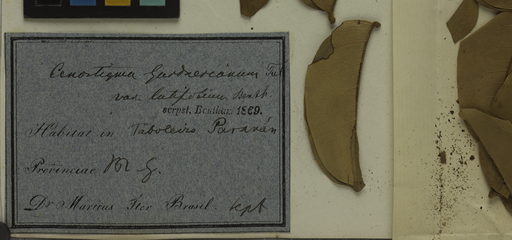 Cenostigma Gardnerianum Tul
var latifolium Benth
scrpst. Benthm: 1869.
Habitat in Taboleiro Paranán
Provinciae M G.
Dr Martius Iter Brasil. sept